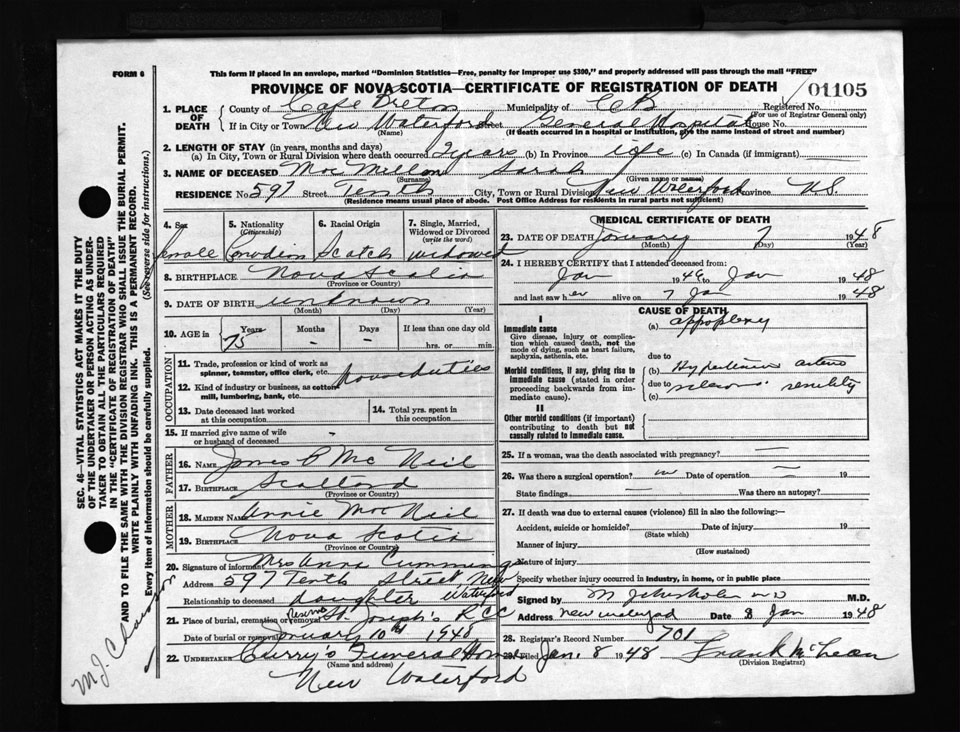 FORM 6
This form if placed in an envelope, marked "Dominion Statistics—Free, penalty for improper use $300," and properly addressed will pass through the mail "FREE"
PROVINCE OF NOVA SCOTIA—CERTIFICATE OF REGISTRATION OF DEATH
01105
1. PLACE OF DEATH
County of Cape Breton Municipality of C B Registered No.
(For use of Registrar General only)
If in City or Town New Waterford Street General Hospital House No.
(Name) (If death occurred in a hospital or institution, give the name instead of street and number)
2. LENGTH OF STAY (in years, months and days)
(a) In City, Town or Rural Division where death occurred 2 years (b) In Province life (c) In Canada (if immigrant)
3. NAME OF DECEASED Mac Millan Sarah
(Surname) (Given name or names)
RESIDENCE No. 597 Street Tenth City, Town or Rural Division New Waterford Province N.S.
(Residence means usual place of abode. Post Office Address for residents in rural parts not sufficient)
4. Sex
female
5. Nationality
(Citizenship)
Canadian
6. Racial Origin
Scotch
7. Single, Married, Widowed or Divorced
(write the word)
widowed
8. BIRTHPLACE Nova Scotia
(Province or Country)
9. DATE OF BIRTH unknown
(Month) (Day) (Year)
10. AGE in
Years Months Days If less than one day old
75 - - hrs. or min.
OCCUPATION
11. Trade, profession or kind of work as spinner, teamster, office clerk, etc.
House duties
12. Kind of industry or business, as cotton mill, lumbering, bank, etc.
13. Date deceased last worked at this occupation
14. Total yrs. spent in this occupation
15. If married give name of wife or husband of deceased -
FATHER
16. NAME James P Mc Neil
17. BIRTHPLACE Scotland
(Province or Country)
MOTHER
18. MAIDEN NAME Annie Mac Neil
19. BIRTHPLACE Nova Scotia
(Province or Country)
20. Signature of informant Mrs Anna Cummings
Address 597 Tenth Street New Waterford
Relationship to deceased daughter
21. Place of burial, cremation or removal Reserve St. Joseph's R C C
Date of burial or removal January 10th 1948
22. UNDERTAKER Curry's Funeral Home
(Name and address)
New Waterford
MEDICAL CERTIFICATE OF DEATH
23. DATE OF DEATH January 7 1948
(Month) (Day) (Year)
24. I HEREBY CERTIFY that I attended deceased from:
Jan 1946 to Jan 1948
and last saw her alive on 7 Jan 1948
CAUSE OF DEATH
I
Immediate cause
Give disease, injury or complication which caused death, not the mode of dying, such as heart failure, asphyxia, asthenia, etc.
(a) appoplexy
due to
Morbid conditions, if any, giving rise to immediate cause (stated in order proceeding backwards from immediate cause).
(b) Hypertension arterio
due to sclerosis senility
(c)
II
Other morbid conditions (if important) contributing to death but not causally related to immediate cause.
25. If a woman, was the death associated with pregnancy? —
26. Was there a surgical operation? no Date of operation — 19
State findings — Was there an autopsy? —
27. If death was due to external causes (violence) fill in also the following:—
Accident, suicide or homicide? Date of injury 19
(State which)
Manner of injury
(How sustained)
Nature of injury
Specify whether injury occurred in industry, in home, or in public place
Signed by M M.D.
Address New Waterford Date 8 Jan 1948
28. Registrar's Record Number 701
29. Filed Jan. 8 1948 Frank McLean
(Division Registrar)
SEC. 46—VITAL STATISTICS ACT MAKES IT THE DUTY OF THE UNDERTAKER OR PERSON ACTING AS UNDERTAKER TO OBTAIN ALL THE PARTICULARS REQUIRED IN THE "CERTIFICATE OF REGISTRATION OF DEATH" AND TO FILE THE SAME WITH THE DIVISION REGISTRAR WHO SHALL ISSUE THE BURIAL PERMIT.
WRITE PLAINLY WITH UNFADING INK. THIS IS A PERMANENT RECORD.
Every item of information should be carefully supplied. (See reverse side for instructions.)
M.J.